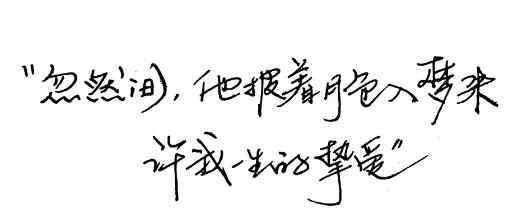 "忽然间，他披着月色入梦来
许我一生的挚爱"